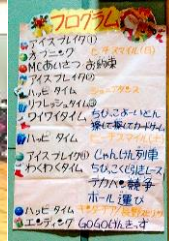 プログラム
アイスブレイク①
オープニング ピースマイル(5)
MCあいさつ・お約束
アイスブレイク②
ハッピータイム ジュニアダンス
リフレッシュタイム
ワイワイタイム ちびっこよーいどん
ハッピータイム ピースマイル
アイスブレイク じゃんけん列車
わくわくタイム ちびっこくぐりレース
デカパン競争
ボール運び
ハッピータイム
エンディング GOGOけんきっず